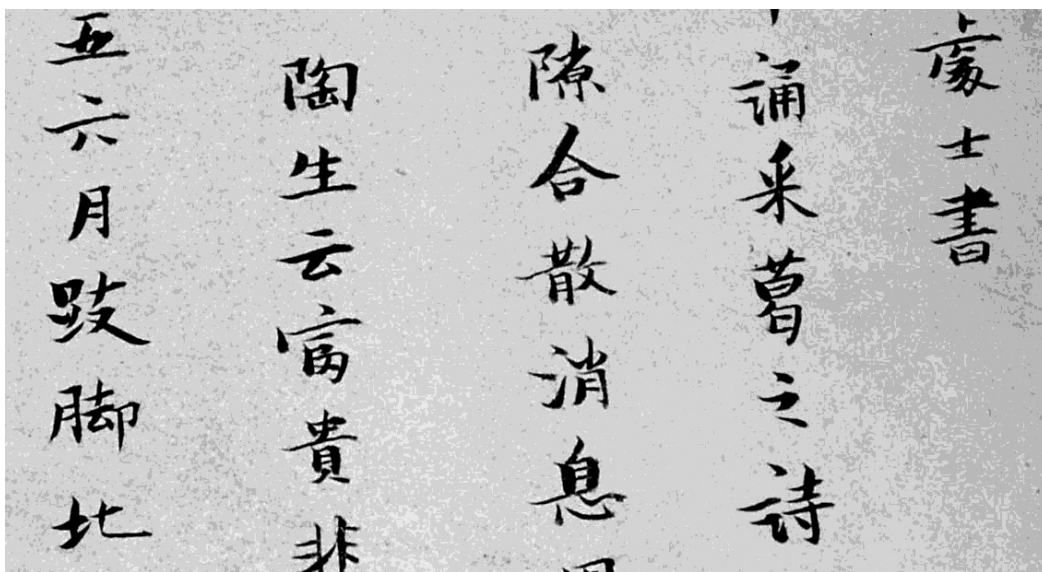 處士書
誦采葛之詩
隙合散消息
陶生云富貴非
五六月跂脚北